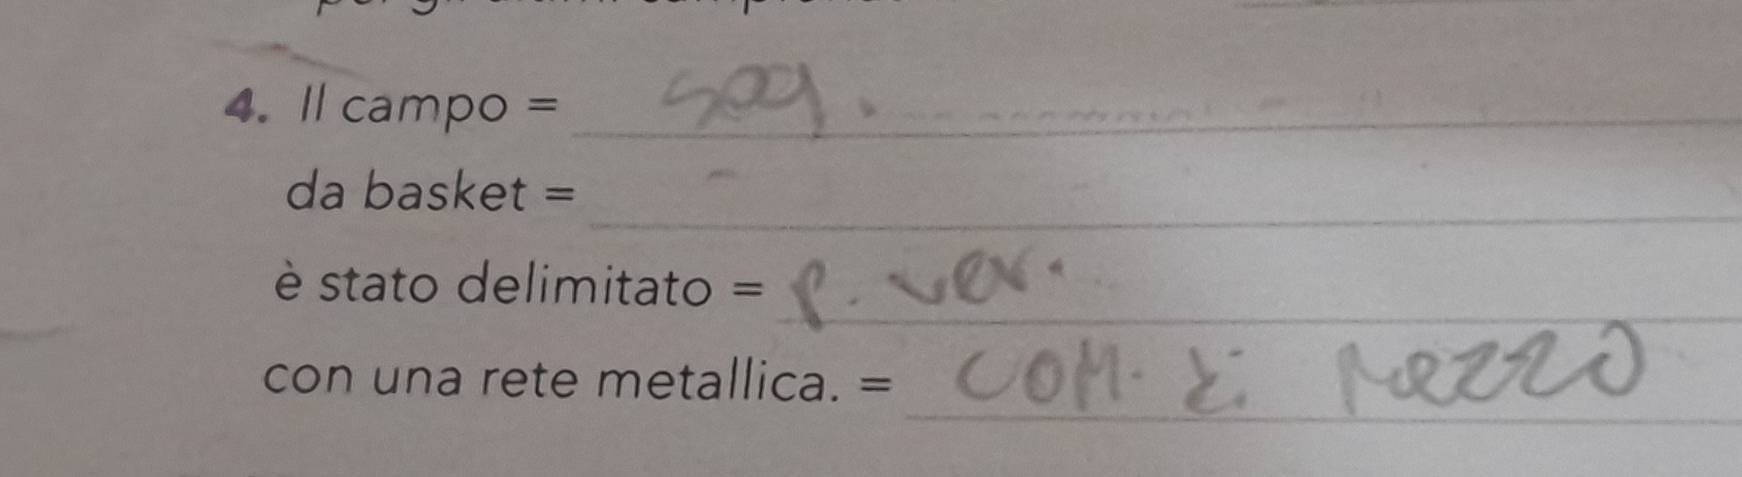 4. Il campo = sog.
da basket =
è stato delimitato = p. ver.
con una rete metallica. = COM. di mezzo